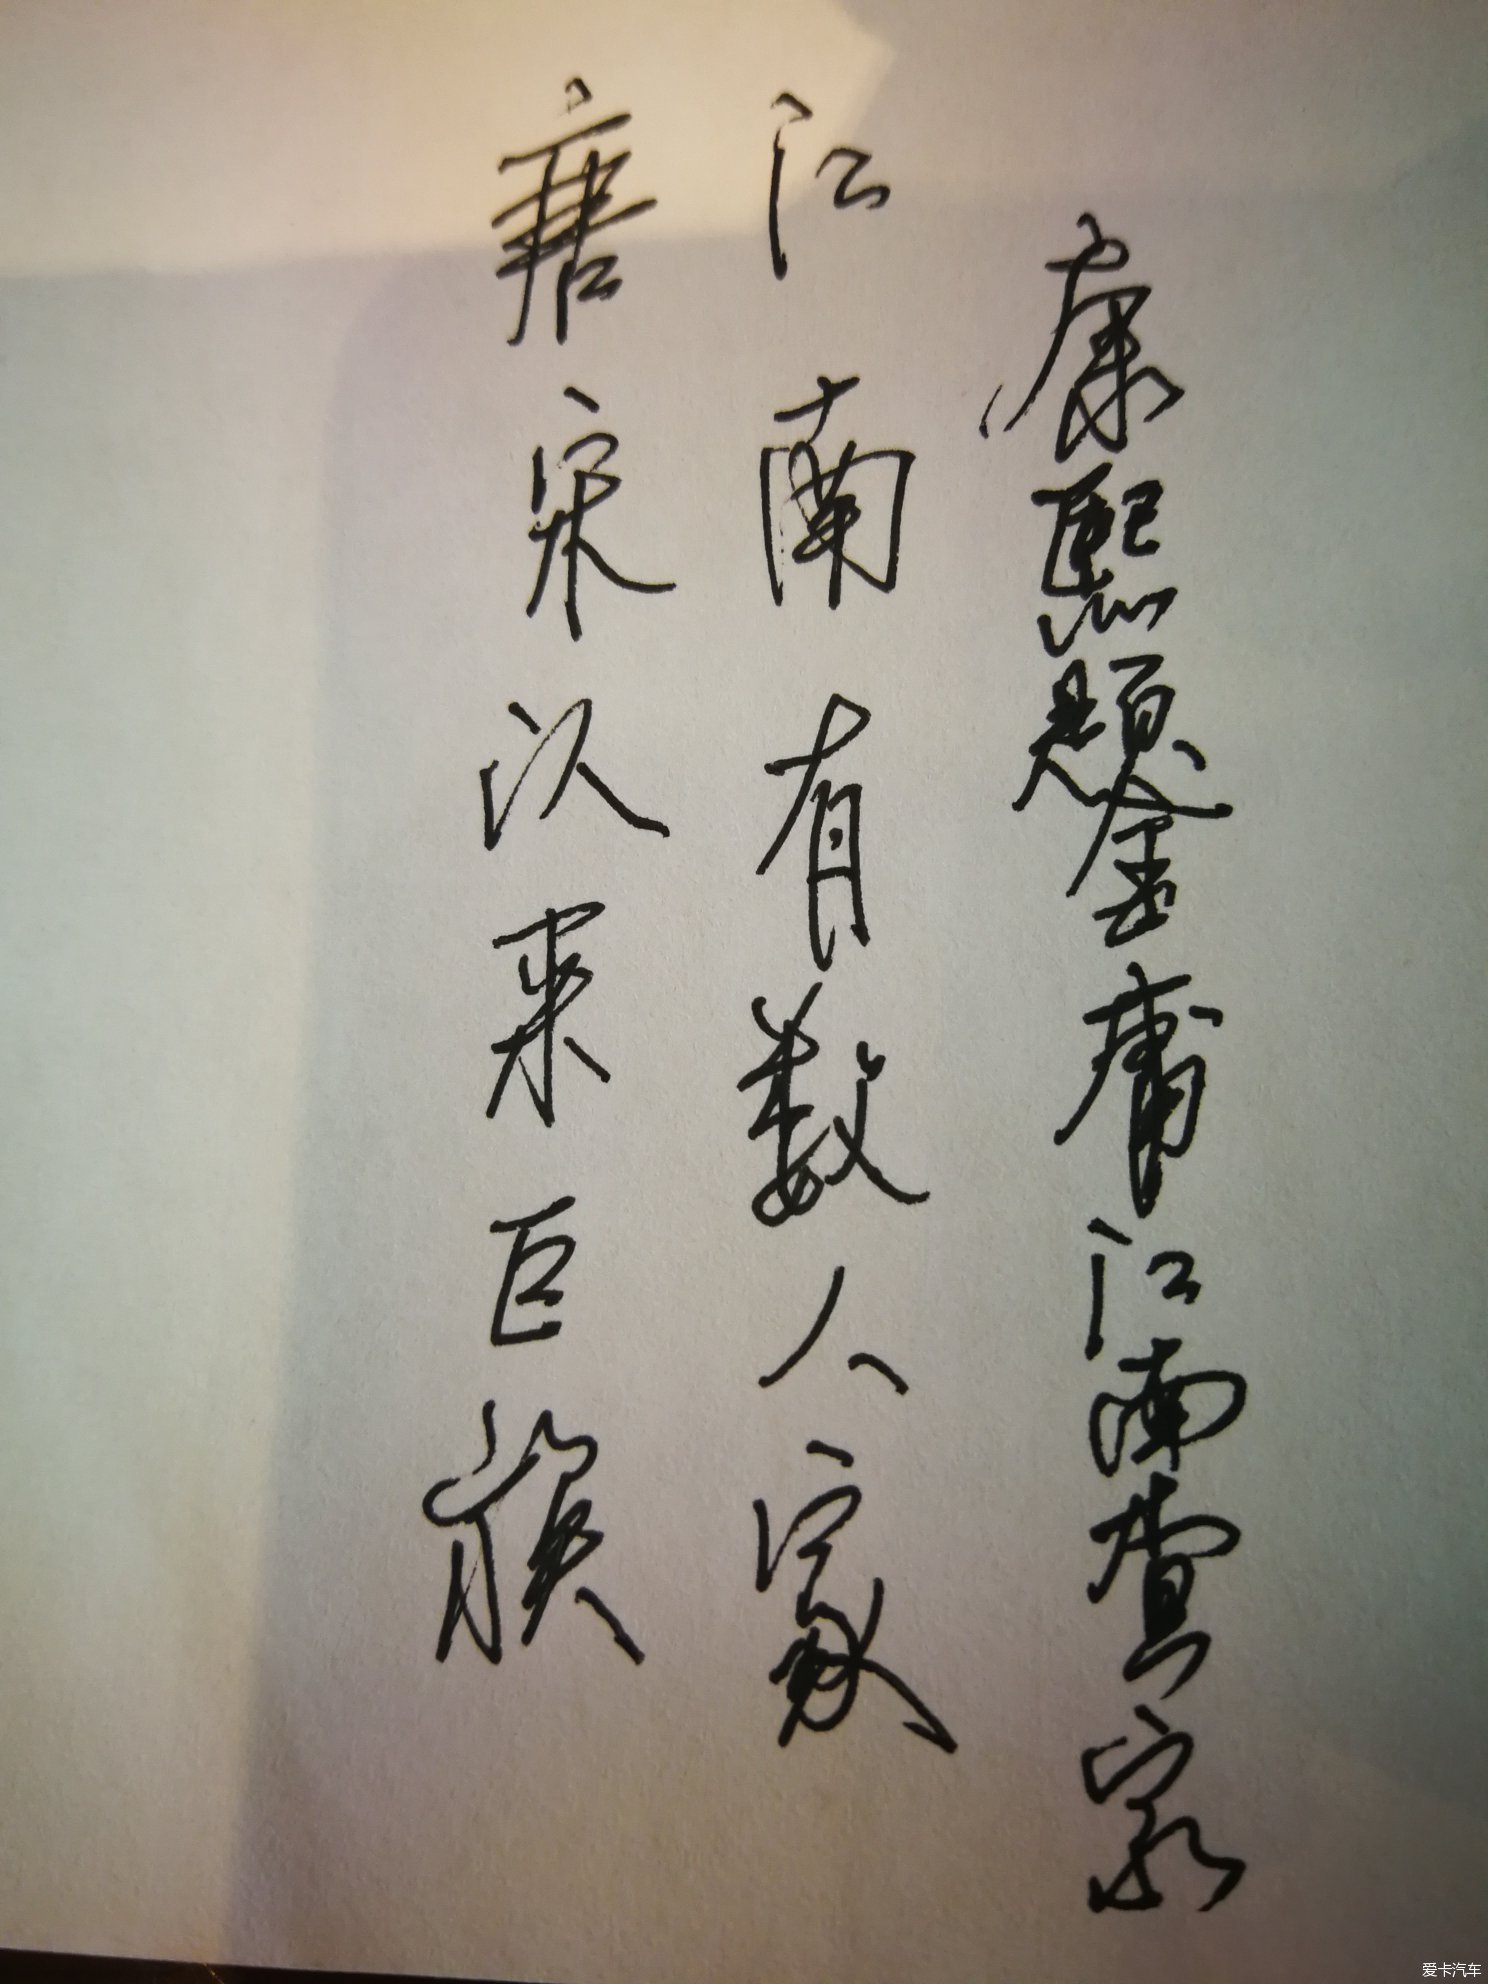 康熙题金庸江南查家
江南有数人家
唐宋以来巨族
爱卡汽车